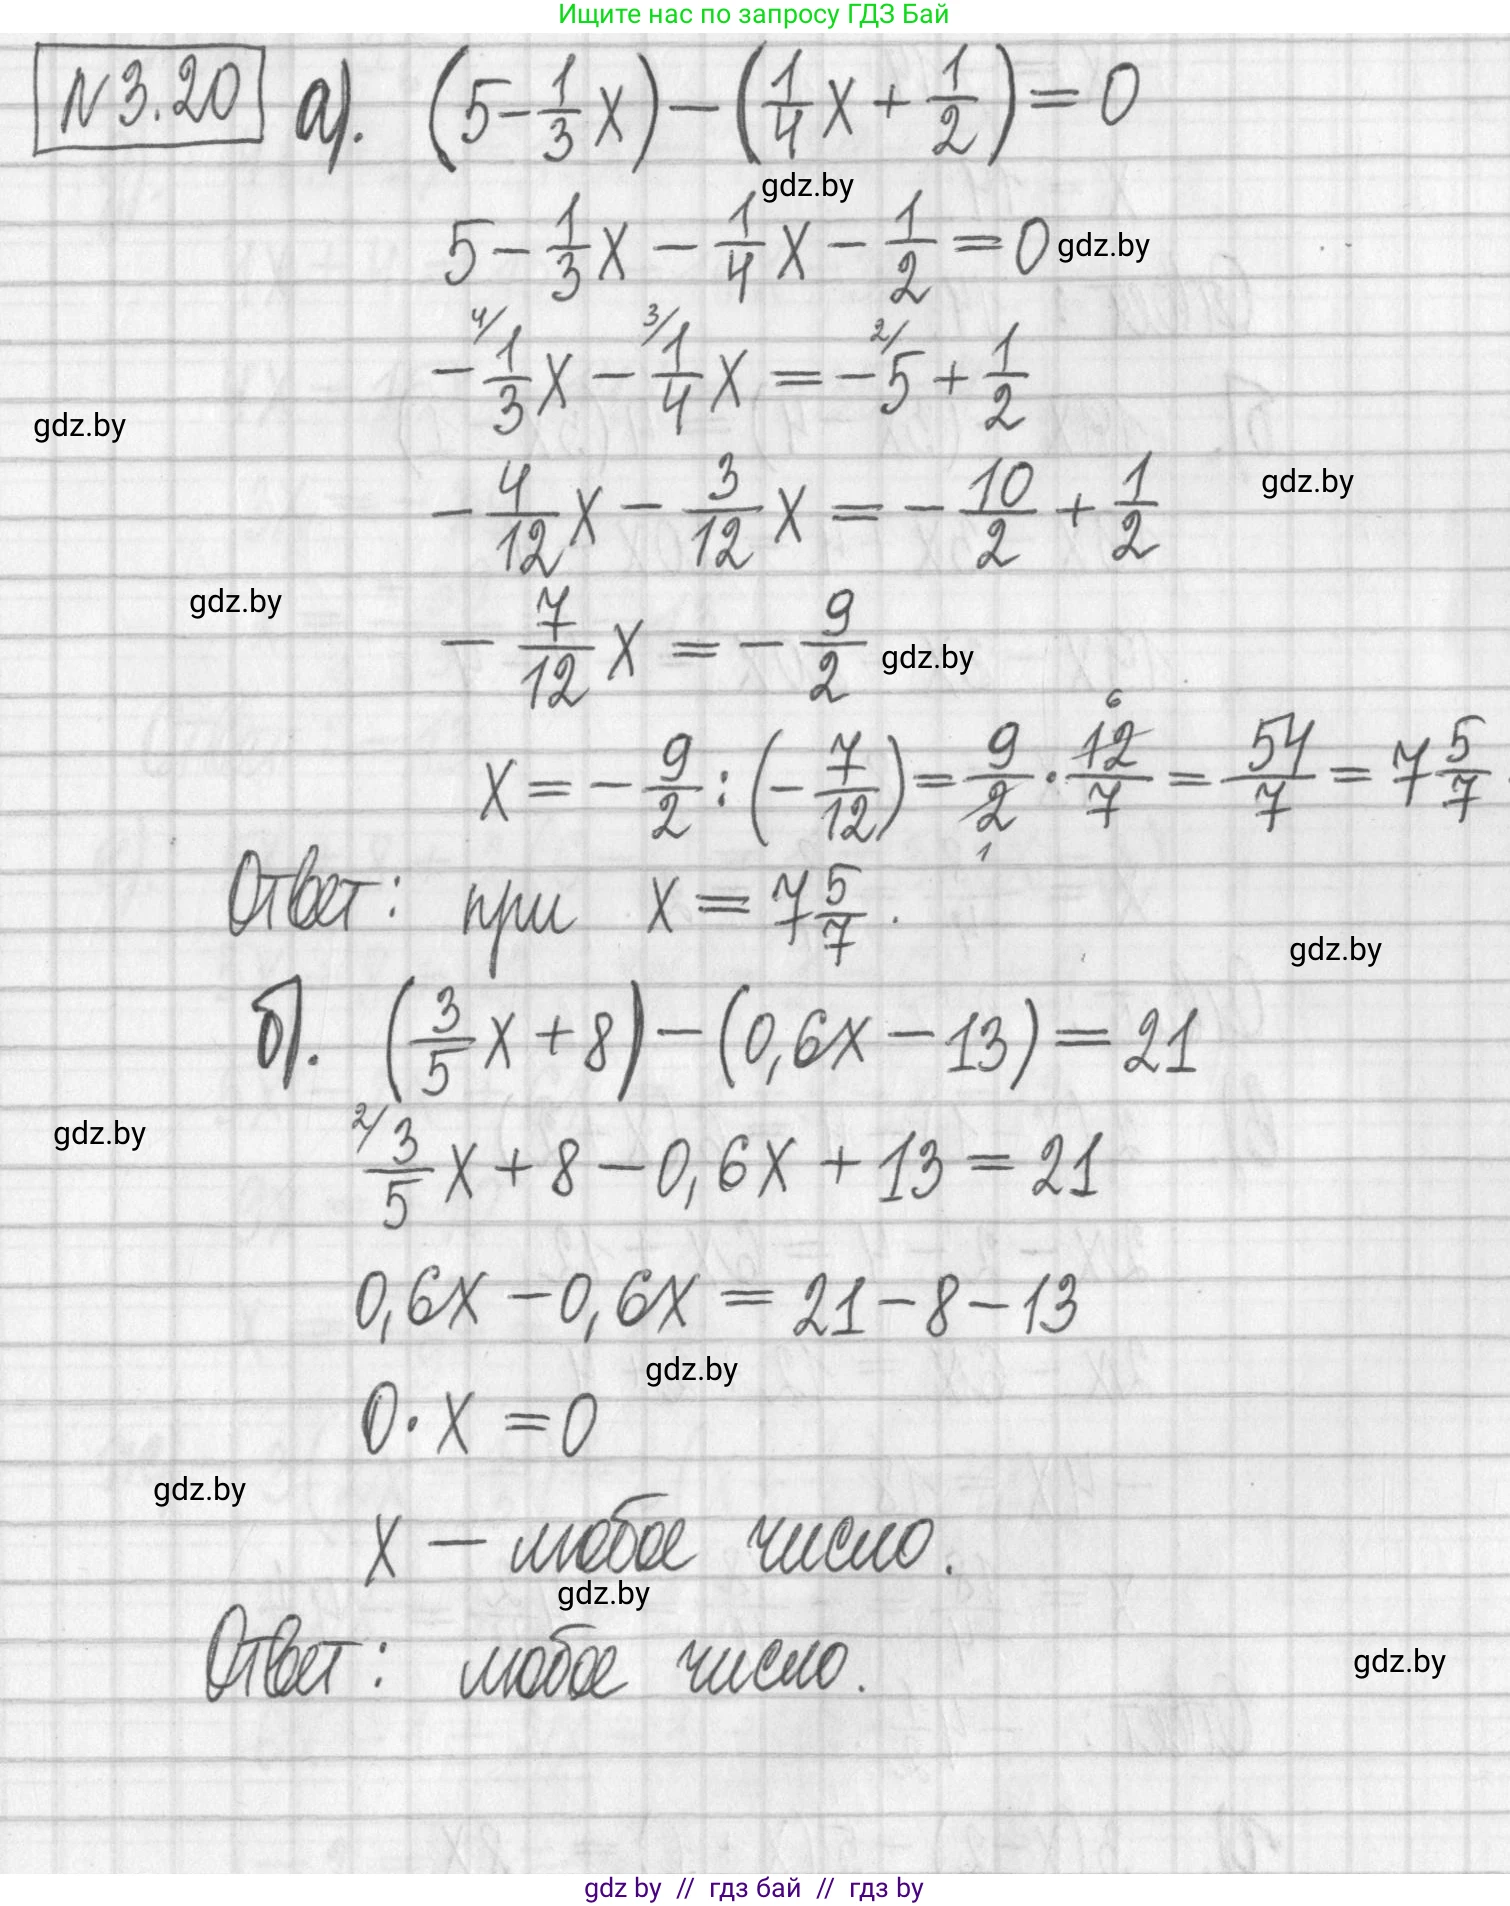 Ищите нас по запросу ГДЗ Бай
№3.20 а). (5 - 1/3 x) - (1/4 x + 1/2) = 0
gdz.by
5 - 1/3 x - 1/4 x - 1/2 = 0 gdz.by
- 4/ 1/3 x - 3/ 1/4 x = - 2/ 5 + 1/2
gdz.by
- 4/12 x - 3/12 x = - 10/2 + 1/2
gdz.by
gdz.by
- 7/12 x = - 9/2 gdz.by
x = - 9/2 : (- 7/12) = 9/2 · 12/7 = 54/7 = 7 5/7
6
1
Ответ: при x = 7 5/7.
gdz.by
б). (3/5 x + 8) - (0,6x - 13) = 21
gdz.by
2/ 3/5 x + 8 - 0,6x + 13 = 21
0,6x - 0,6x = 21 - 8 - 13
gdz.by
0 · x = 0
gdz.by
x - любое число.
gdz.by
Ответ: любое число.
gdz.by
gdz by // гдз бай // гдз by